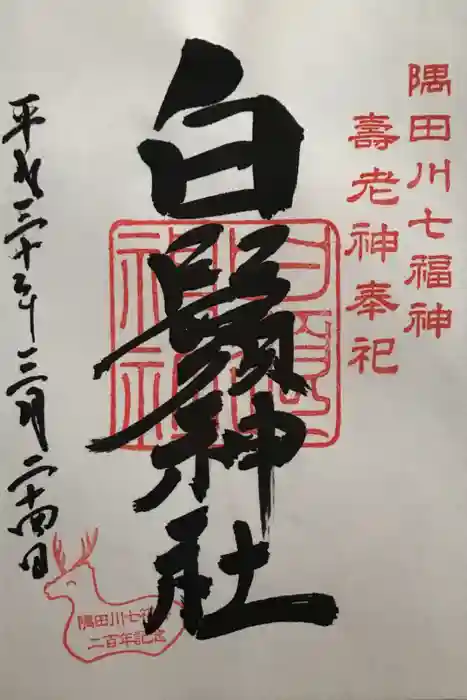 隅田川七福神
壽老神奉祀
白鬚神社
白鬚神社
平成三十年三月二十四日
隅田川七福
二百年記念